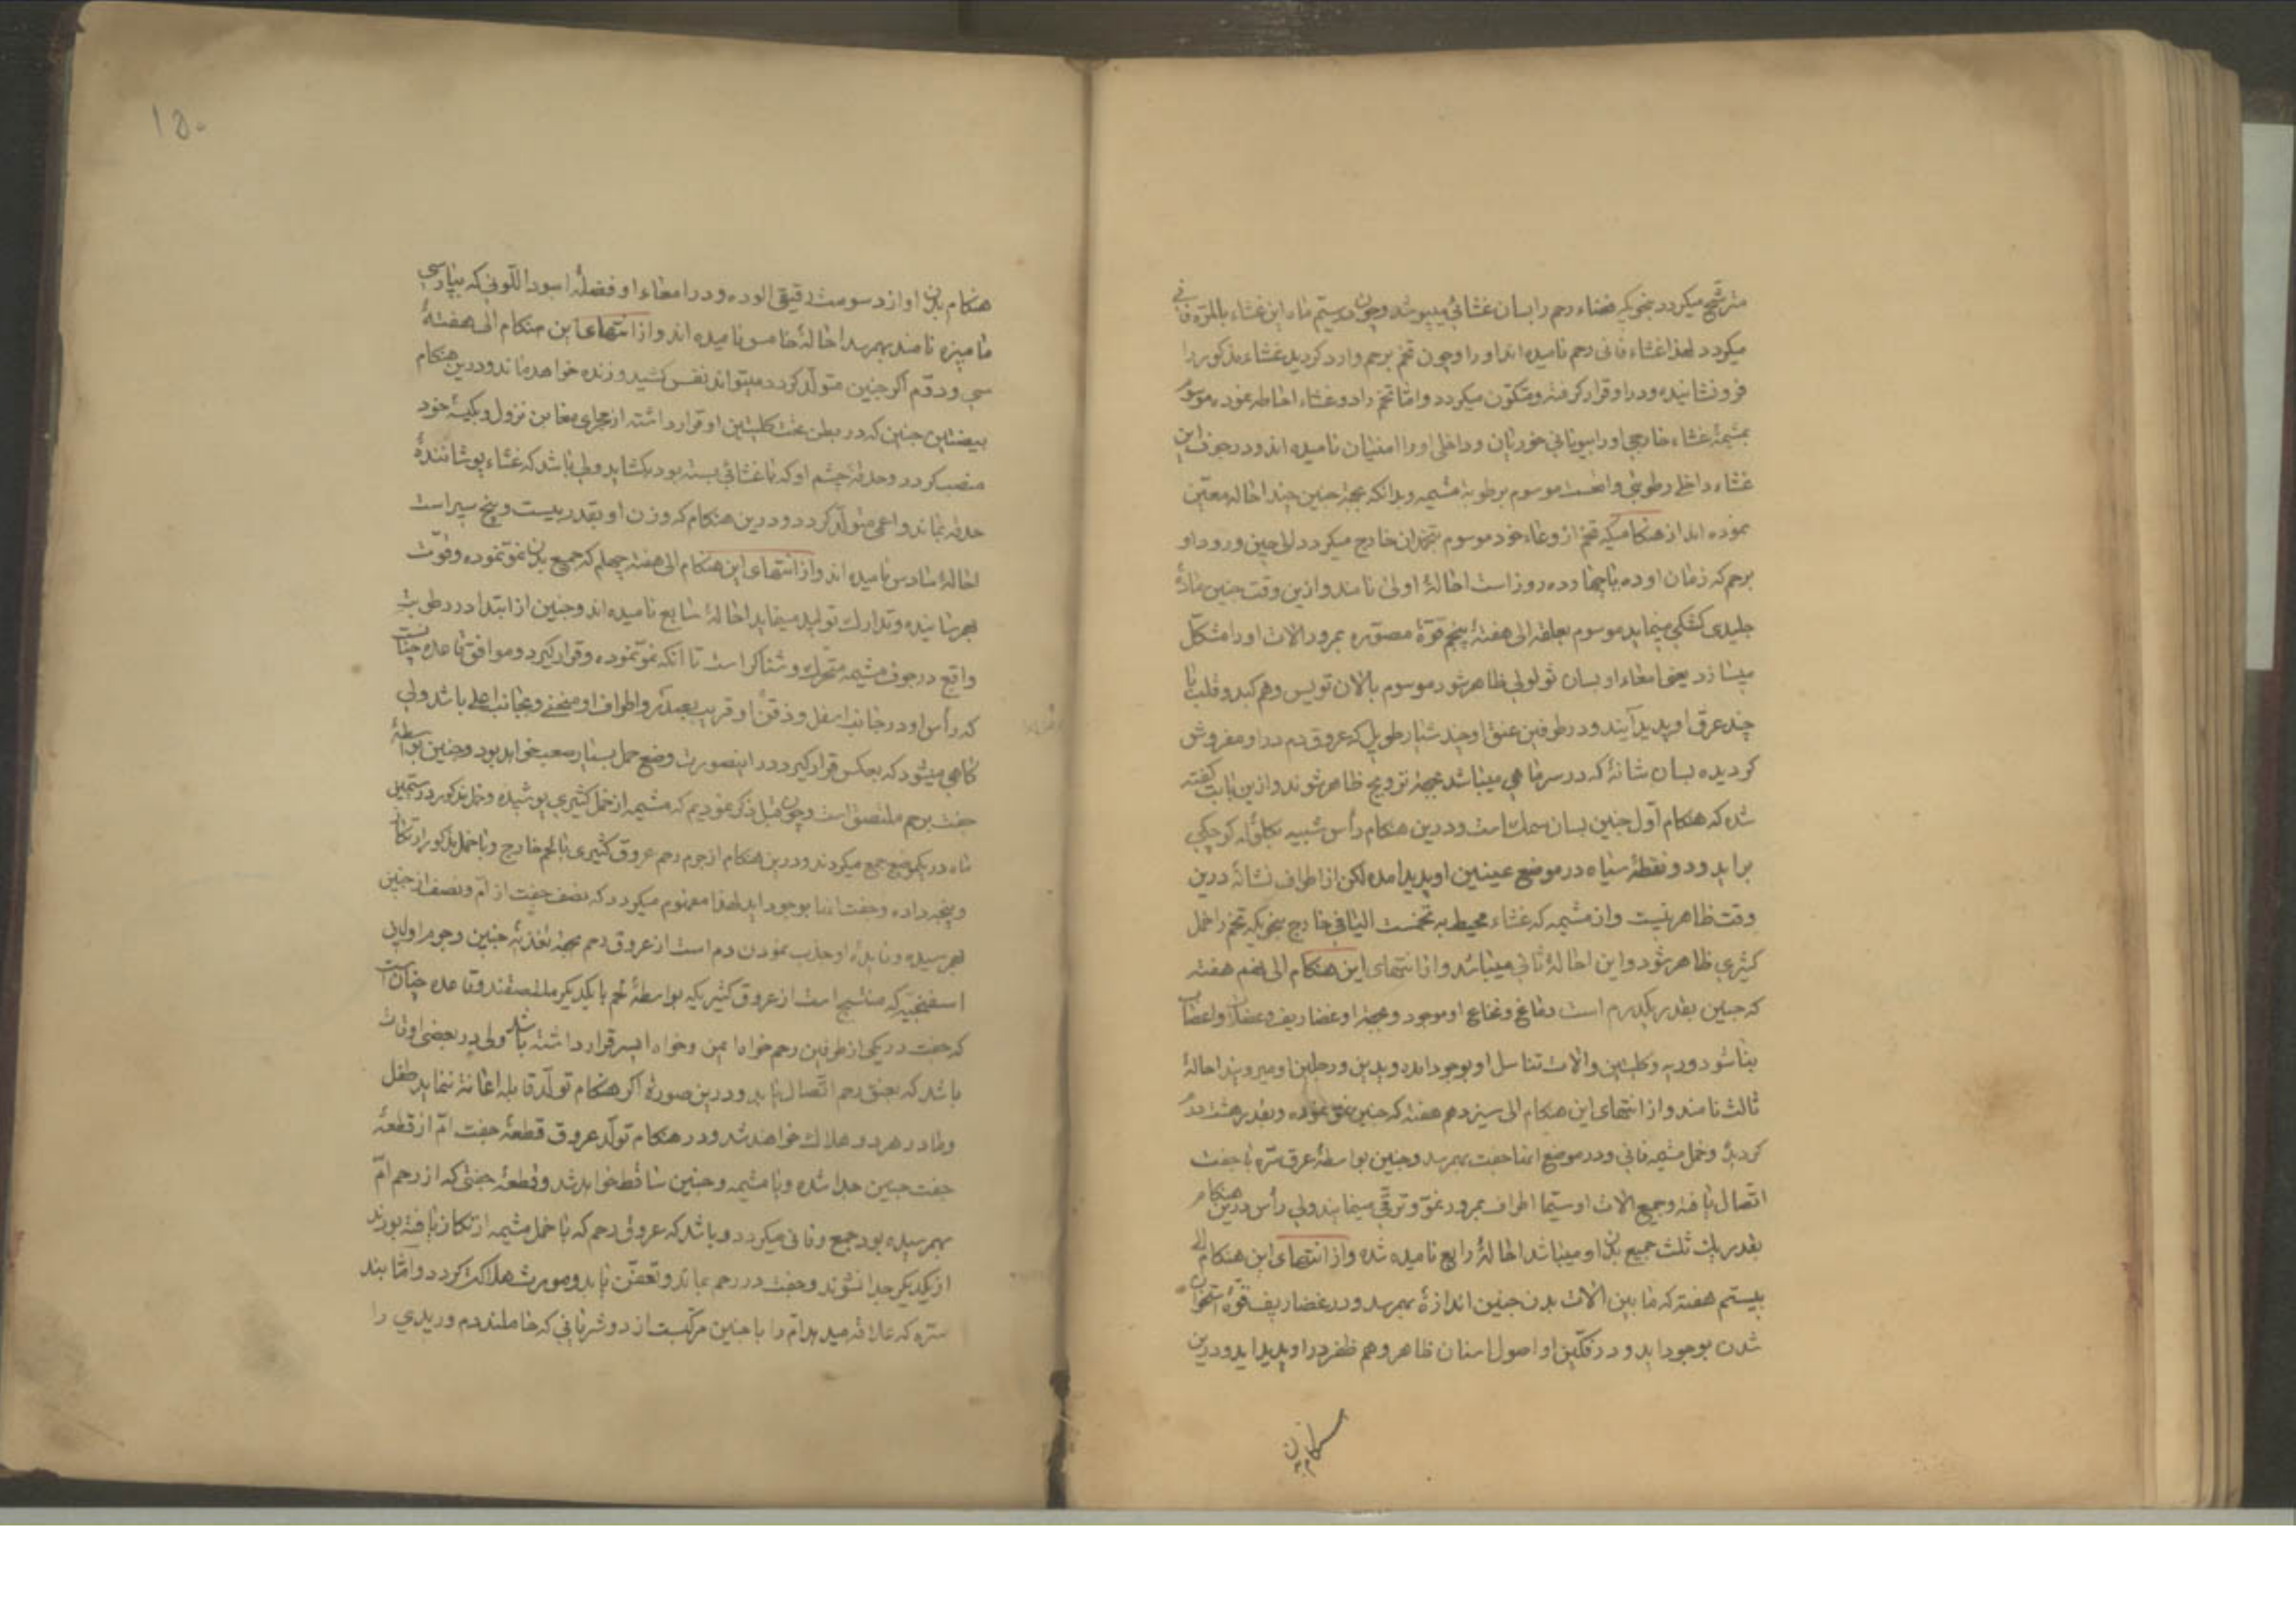 مترشّح میکردد بنحویکه فضاء رحم را بسان غشائی میپوشد وچون در ستیم ماه این غشاء بالمرّه فانی
میکردد لهذا غشاء فانی رحم نامیده اند او را وچون تخم برحم وارد کردید غشاء مذکور را
فرو نشانیده ودر او قرار کرفته ومتکوّن میکردد وامّا تخم را دو غشاء احاطه نموده موسوم
بمشیمهٔ غشاء خارجی او را بیونانی خوریان وداخلی او را امنیان نامیده اند ودر جوف این
غشاء داخلی رطوبتی واقعست موسوم برطوبة مشیمه وبدانکه بجهة جنین چند احاله معیّن
نموده اند از هنکامیکه تخم از وعاء خود موسوم بتخمدان خارج میکردد الی حین ورود او
برحم که زمان او ده یا چهارده روز است احالهٔ اولی نامند وازین وقت جنین مادّهٔ
جلیدی کشکی مینماید موسوم بعلقه الی هفتهٔ پنجم قوّهٔ مصوّره بمرور الات او را متشکّل
میسازد یعنی امعاء او بسان ثولولی ظاهر شود موسوم بالان تویس وهم کبد وقلب با
چند عرق او پدید آیند ودر طرفین عنق او چند شیار طویل که عروق دم در او مفروش
کردیده بسان شانهٔ که در سر ماهی میباشد بجهة ترویح ظاهر شوند وازین بابت کفته
شد که هنکام اوّل جنین بسان سمک است ودرین هنکام رأس شبیه بکلولهٔ کوچکی
براید ودو نقطهٔ سیاه در موضع عینین او پدید امده لکن از اطراف نشانهٔ درین
وقت ظاهر نیست وان مشیمه که غشاء محیط به تخمست الیافی خارج بنحویکه تخم را خمل
کثیری ظاهر شود واین احالهٔ ثانی میباشد واز انتهای این هنکام الی نهم هفته
که جنین بقدر یکدرم است دماغ ونخاع او موجود وبجهة او غضاریف وعضلات واعصاب
بنا شود وریه وکلیتین والات تناسل او بوجود امده ویدین ورجلین او میرویند احالهٔ
ثالث نامند واز انتهای این هنکام الی سیزدهم هفته که جنین نموّ نموده وبقدر هشت درم
کردید وخمل مشیمه فانی ودر موضع التقا جفت بهمرسد وجنین بواسطهٔ عرق سرّه با جفت
اتّصال یافته وجمیع الات او سیّما اطراف بمرور نموّ وترقّی مینمایند ولی رأس درین هنکام
بقدر یک ثلث جمیع بدن او میباشد احالهٔ رابع نامیده شده واز انتهای این هنکام الی
بیستم هفته که ما بین الات بدن جنین اندازهٔ بهمرسد ودر غضاریف قوّهٔ استخوان
شدن بوجود اید ودر فکّین او اصول اسنان ظاهر وهم ظفر در او پدید اید ودرین
هنکام بدن
۱۵۰
هنکام بدن او از دسومت رقیقی الوده ودر امعاء او فضلهٔ اسود اللّونی که بپارسی
مامیزه نامند بهمرسد احالهٔ خامس نامیده اند واز انتهای این هنکام الی هفتهٔ
سی ودوّم اکر جنین متولّد کردد میتواند نفس کشید وزنده خواهد ماند ودرین هنکام
بیضتین جنین که در بطن تحت کلیتین او قرار داشته از مجرای مغابن نزول وبکیسهٔ خود
منصب کردد وحدقهٔ چشم او که با غشائی بسته بود بکشاید ولی باشد که غشاء پوشانندهٔ
حدقه بماند واعمی متولّد کردد ودرین هنکام که وزن او بقدر بیست وپنج سیر است
احالهٔ سادس نامیده اند واز انتهای این هنکام الی هفتهٔ چهلم که جمیع بدن نموّ نموده وقوّت
بهرسانیده وتدارک تولید مینماید احالهٔ سابع نامیده اند وجنین از ابتدا در رطوبت
واقع در جوف مشیمه متحرّک وشناکر است تا انکه نموّ نموده وقرار کیرد وموافق قاعده چنانست
که رأس او در جانب اسفل وذقن او قریب بصدر واطراف او منحنی وبجانب اعلی باشد ولی
کاهی میشود که بعکس قرار کیرد در اینصورت وضع حمل بسیار صعب خواهد بود وجنین بواسطهٔ
جفت برحم ملتصق است وچون قبل ذکر نمودیم که مشیمه از خمل کثیری پوشیده وخمل مذکور در ستیمین
ماه در یکموضع جمع میکردند ودرین هنکام از جرم رحم عروق کثیری با لحم خارج وبا خمل مذکور ارتکاز
وپنجه داده وجفت اینا بوجود اید لهذا مفهوم میکردد که نصف جفت از امّ ونصف از جنین
بهرسیده وفایدهٔ او جذب نمودن دم است از عروق رحم بجهة تغذیهٔ جنین وجرم او لیفی
اسفنجیّه که منتسج است از عروق کثیر یکه بواسطهٔ لحم با یکدیکر ملتصقند وقاعده چنانست
که جفت در یکی از طرفین رحم خواه ایمن وخواه ایسر قرار داشته باشد ولی در بعضی اوقات
باشد که بعنق رحم اتّصال یابد ودرین صورة اکر هنکام تولّد قابله اعانة ننماید طفل
ومادر هر دو هلاک خواهند شد ودر هنکام تولّد عروق قطعهٔ جفت امّ از قطعهٔ
جفت جنین جدا شده وبا مشیمه وجنین ساقط خواهد شد وقطعهٔ جفتی که از رحم امّ
بهمرسیده بود جمع وفانی میکردد وباشد که عروق رحم که با خمل مشیمه ارتکاز یافته بودند
از یکدیکر جدا نشوند وجفت در رحم بماند وتعفّن یابد ومورث هلاکت کردد وامّا بند
سرّه که علاقه میدهد امّ را با جنین مرکّبست از دو شریانی که حاملند دم وریدی را